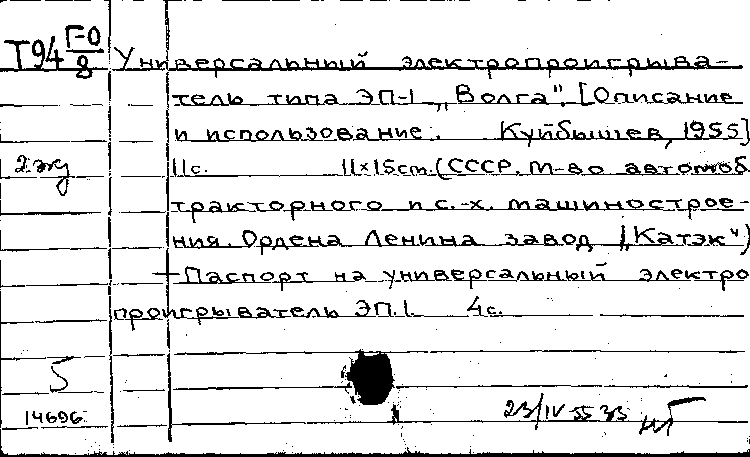 Т94 Г-0/8
Универсальный электропроигрыва-
тель типа ЭП-1 „Волга". [Описание
и использование. Куйбышев, 1955]
2 экз
11с. 11х15см. (СССР. М-во автомоб
тракторного и с.-х. машинострое-
ния. Ордена Ленина завод „Катэк")
—Паспорт на универсальный электро
проигрыватель ЭП.1. 4с.
5
14696
23/IV-55